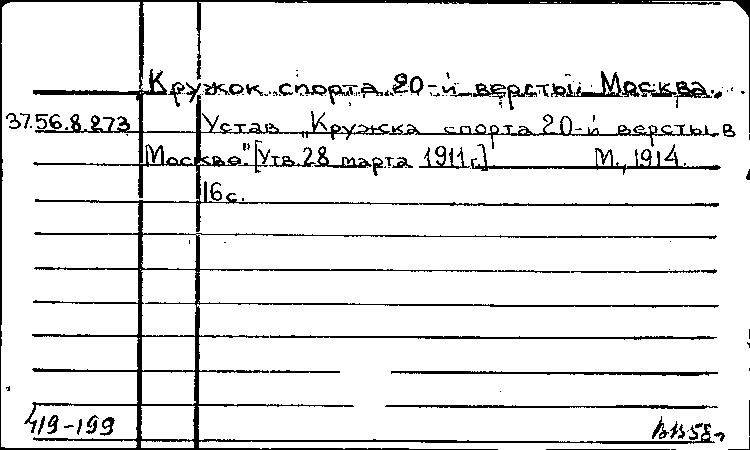 Кружок спорта 20-й версты. Москва.
37.56.8.273 Устав „Кружка спорта 20-й версты в
Москве." [Утв. 28 марта 1911 г.] М., 1914.
16 с.
419-199